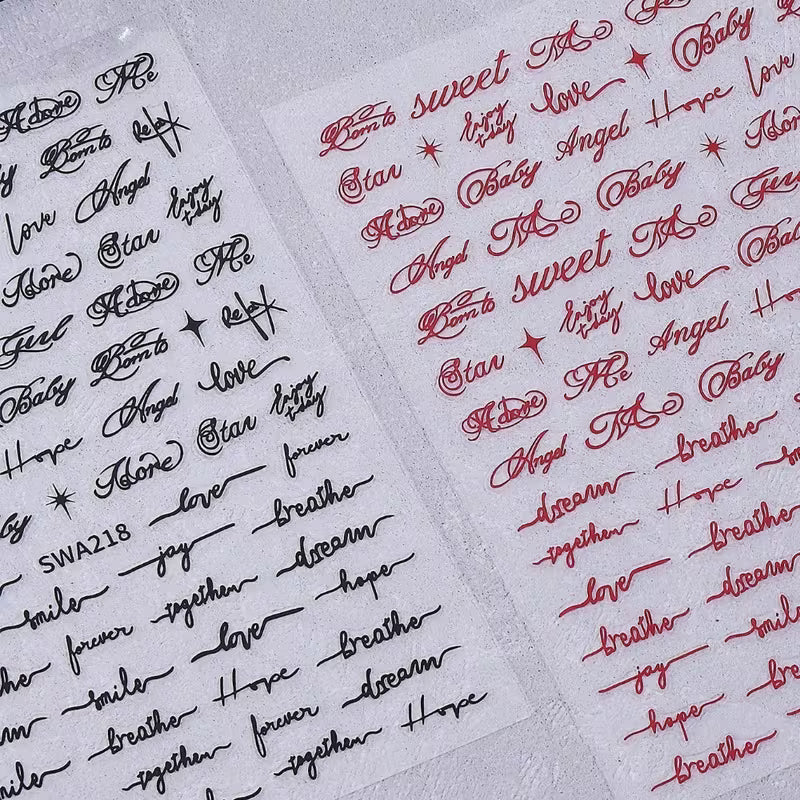 Adore Me
Born to Relax
Love Angel Enjoy today
Adore Star
Adore Me
Girl Born to Relax
Baby Angel love
Hope Star Enjoy today
Adore
SWA218 love forever
smile jay breathe
forever together dream
smile love hope
breathe Hope breathe
together forever dream
together Hope
Born to sweet
Star Enjoy today love Baby
Adore Baby Angel Hope Love
Angel Baby
Born to sweet Girl
Star Enjoy today love
Adore Me Angel
Angel Baby
dream breathe
together Hope
love breathe
breathe dream
jay smile
hope
breathe